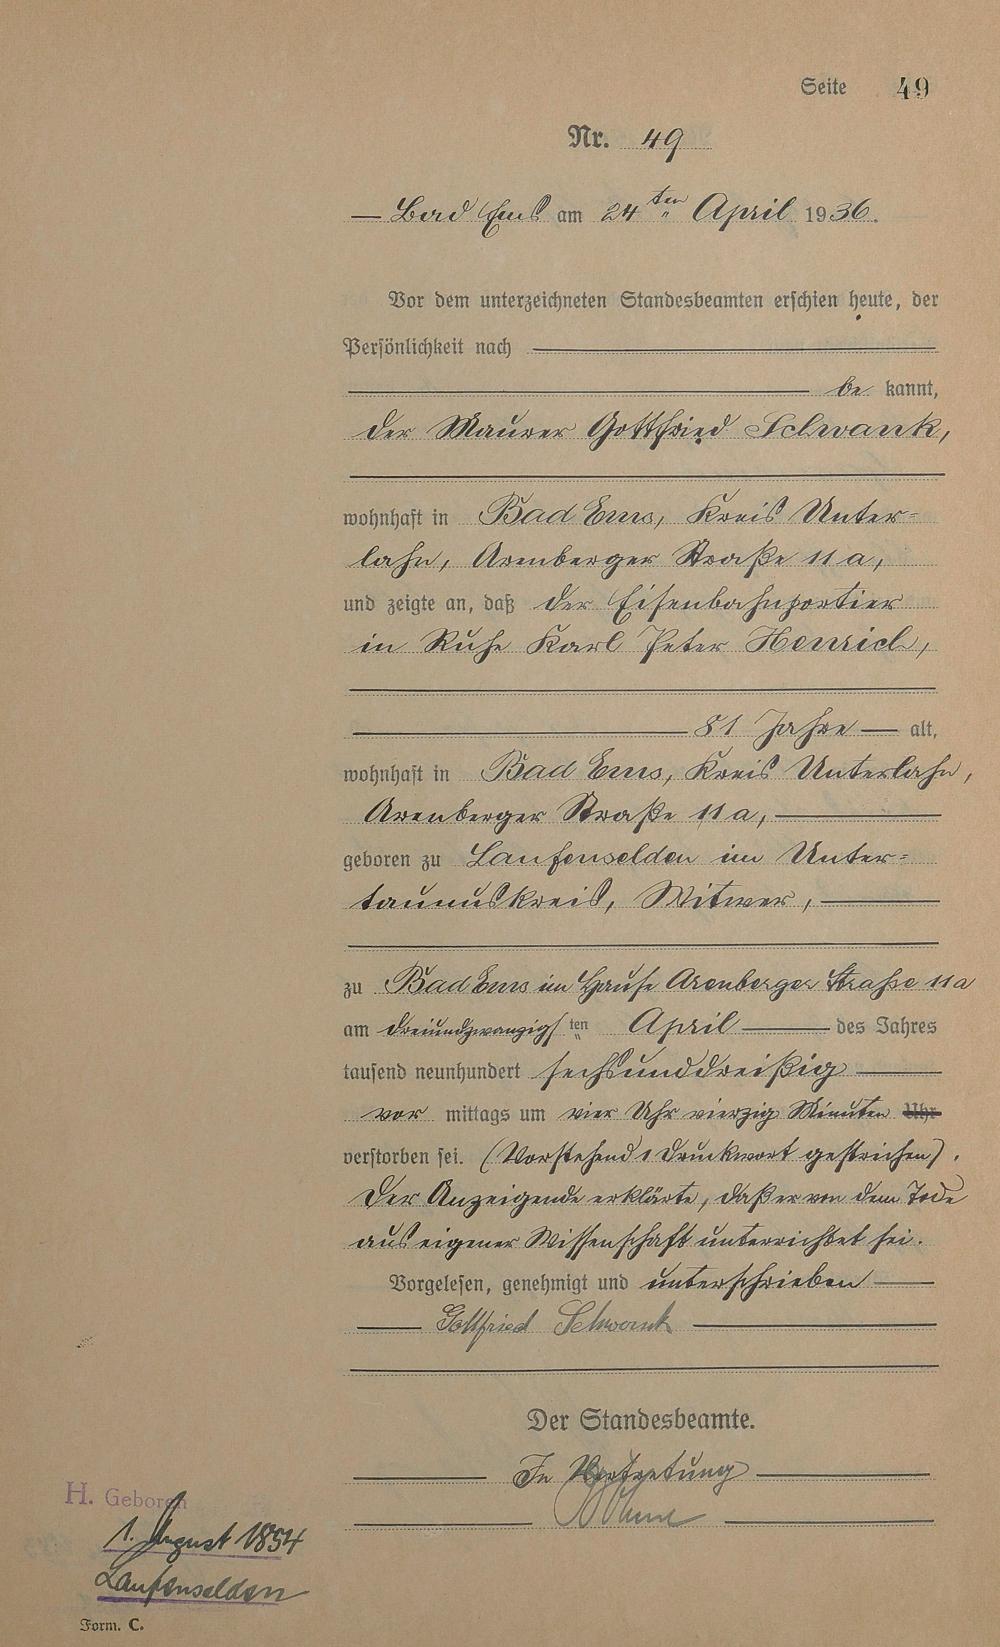 Seite 49
Nr. 49
Bad Ems am 24ten April 1936.
Vor dem unterzeichneten Standesbeamten erschien heute, der
Persönlichkeit nach
be kannt,
der Maurer Gottfried Schwank,
wohnhaft in Bad Ems, Kreis Unter-
lahn, Arenberger Straße 11 a,
und zeigte an, daß der Eisenbahnportier
in Ruhe Karl Peter Henrich,
81 Jahre alt,
wohnhaft in Bad Ems, Kreis Unterlahn,
Arenberger Straße 11 a,
geboren zu Laufenselden im Unter-
taunuskreis, Witwer,
zu Bad Ems im Hause Arenberger Straße 11 a
am dreiundzwanzigsten April des Jahres
tausend neunhundert sechsunddreißig
vor mittags um vier Uhr vierzig Minuten Uhr
verstorben sei. (Vorstehend 1 Druckwort gestrichen).
Der Anzeigende erklärte, daß er von dem Tode
aus eigener Wissenschaft unterrichtet sei.
Vorgelesen, genehmigt und unterschrieben
Gottfried Schwank
Der Standesbeamte.
In Vertretung
H. Geboren
1. August 1854
Laufenselden
Form. C.